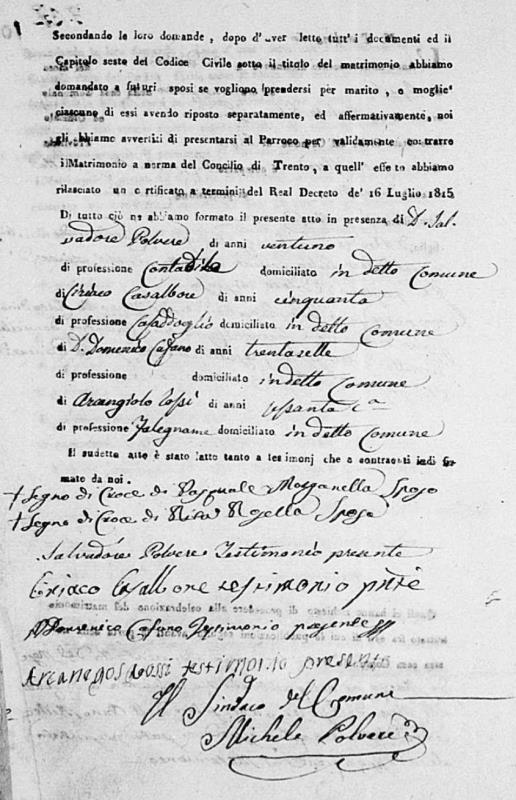 Secondando le loro domande, dopo d'aver letto tutt'i documenti ed il
Capitolo sesto del Codice Civile sotto il titolo del matrimonio abbiamo
domandato a futuri sposi se vogliono prendersi per marito, e moglie
ciascuno di essi avendo riposto separatamente, ed affermativamente, noi
gli abbiamo avvertiti di presentarsi al Parroco per validamente contrarre
il Matrimonio a norma del Concilio di Trento, a quell'effetto abbiamo
rilasciato un certificato a termini del Real Decreto de' 16 Luglio 1815
Di tutto ciò ne abbiamo formato il presente atto in presenza di D. Sal
vadore Polvere di anni ventuno
di professione domiciliato in detto Comune
di Ciriaco Casalbore di anni cinquanta
di professione domiciliato in detto Comune
di D. Domenico Cafano di anni trentasette
di professione domiciliato in detto Comune
di Arcangiolo Cossi di anni sessanta
di professione Falegname domiciliato in detto Comune
Il sudetto atto è stato letto tanto a tesimonj che a contraenti indi fir
mato da noi.
+ Segno di Croce di Pasquale Morganella Sposo
+ Segno di Croce di Sposa
Salvadore Polvere Testimonio presente
Ciriaco Casalbore testimonio pnte
D Domenico Cafano Testimonio presente
testimonio presente
Il Sindaco del Comune
Michele Polvere